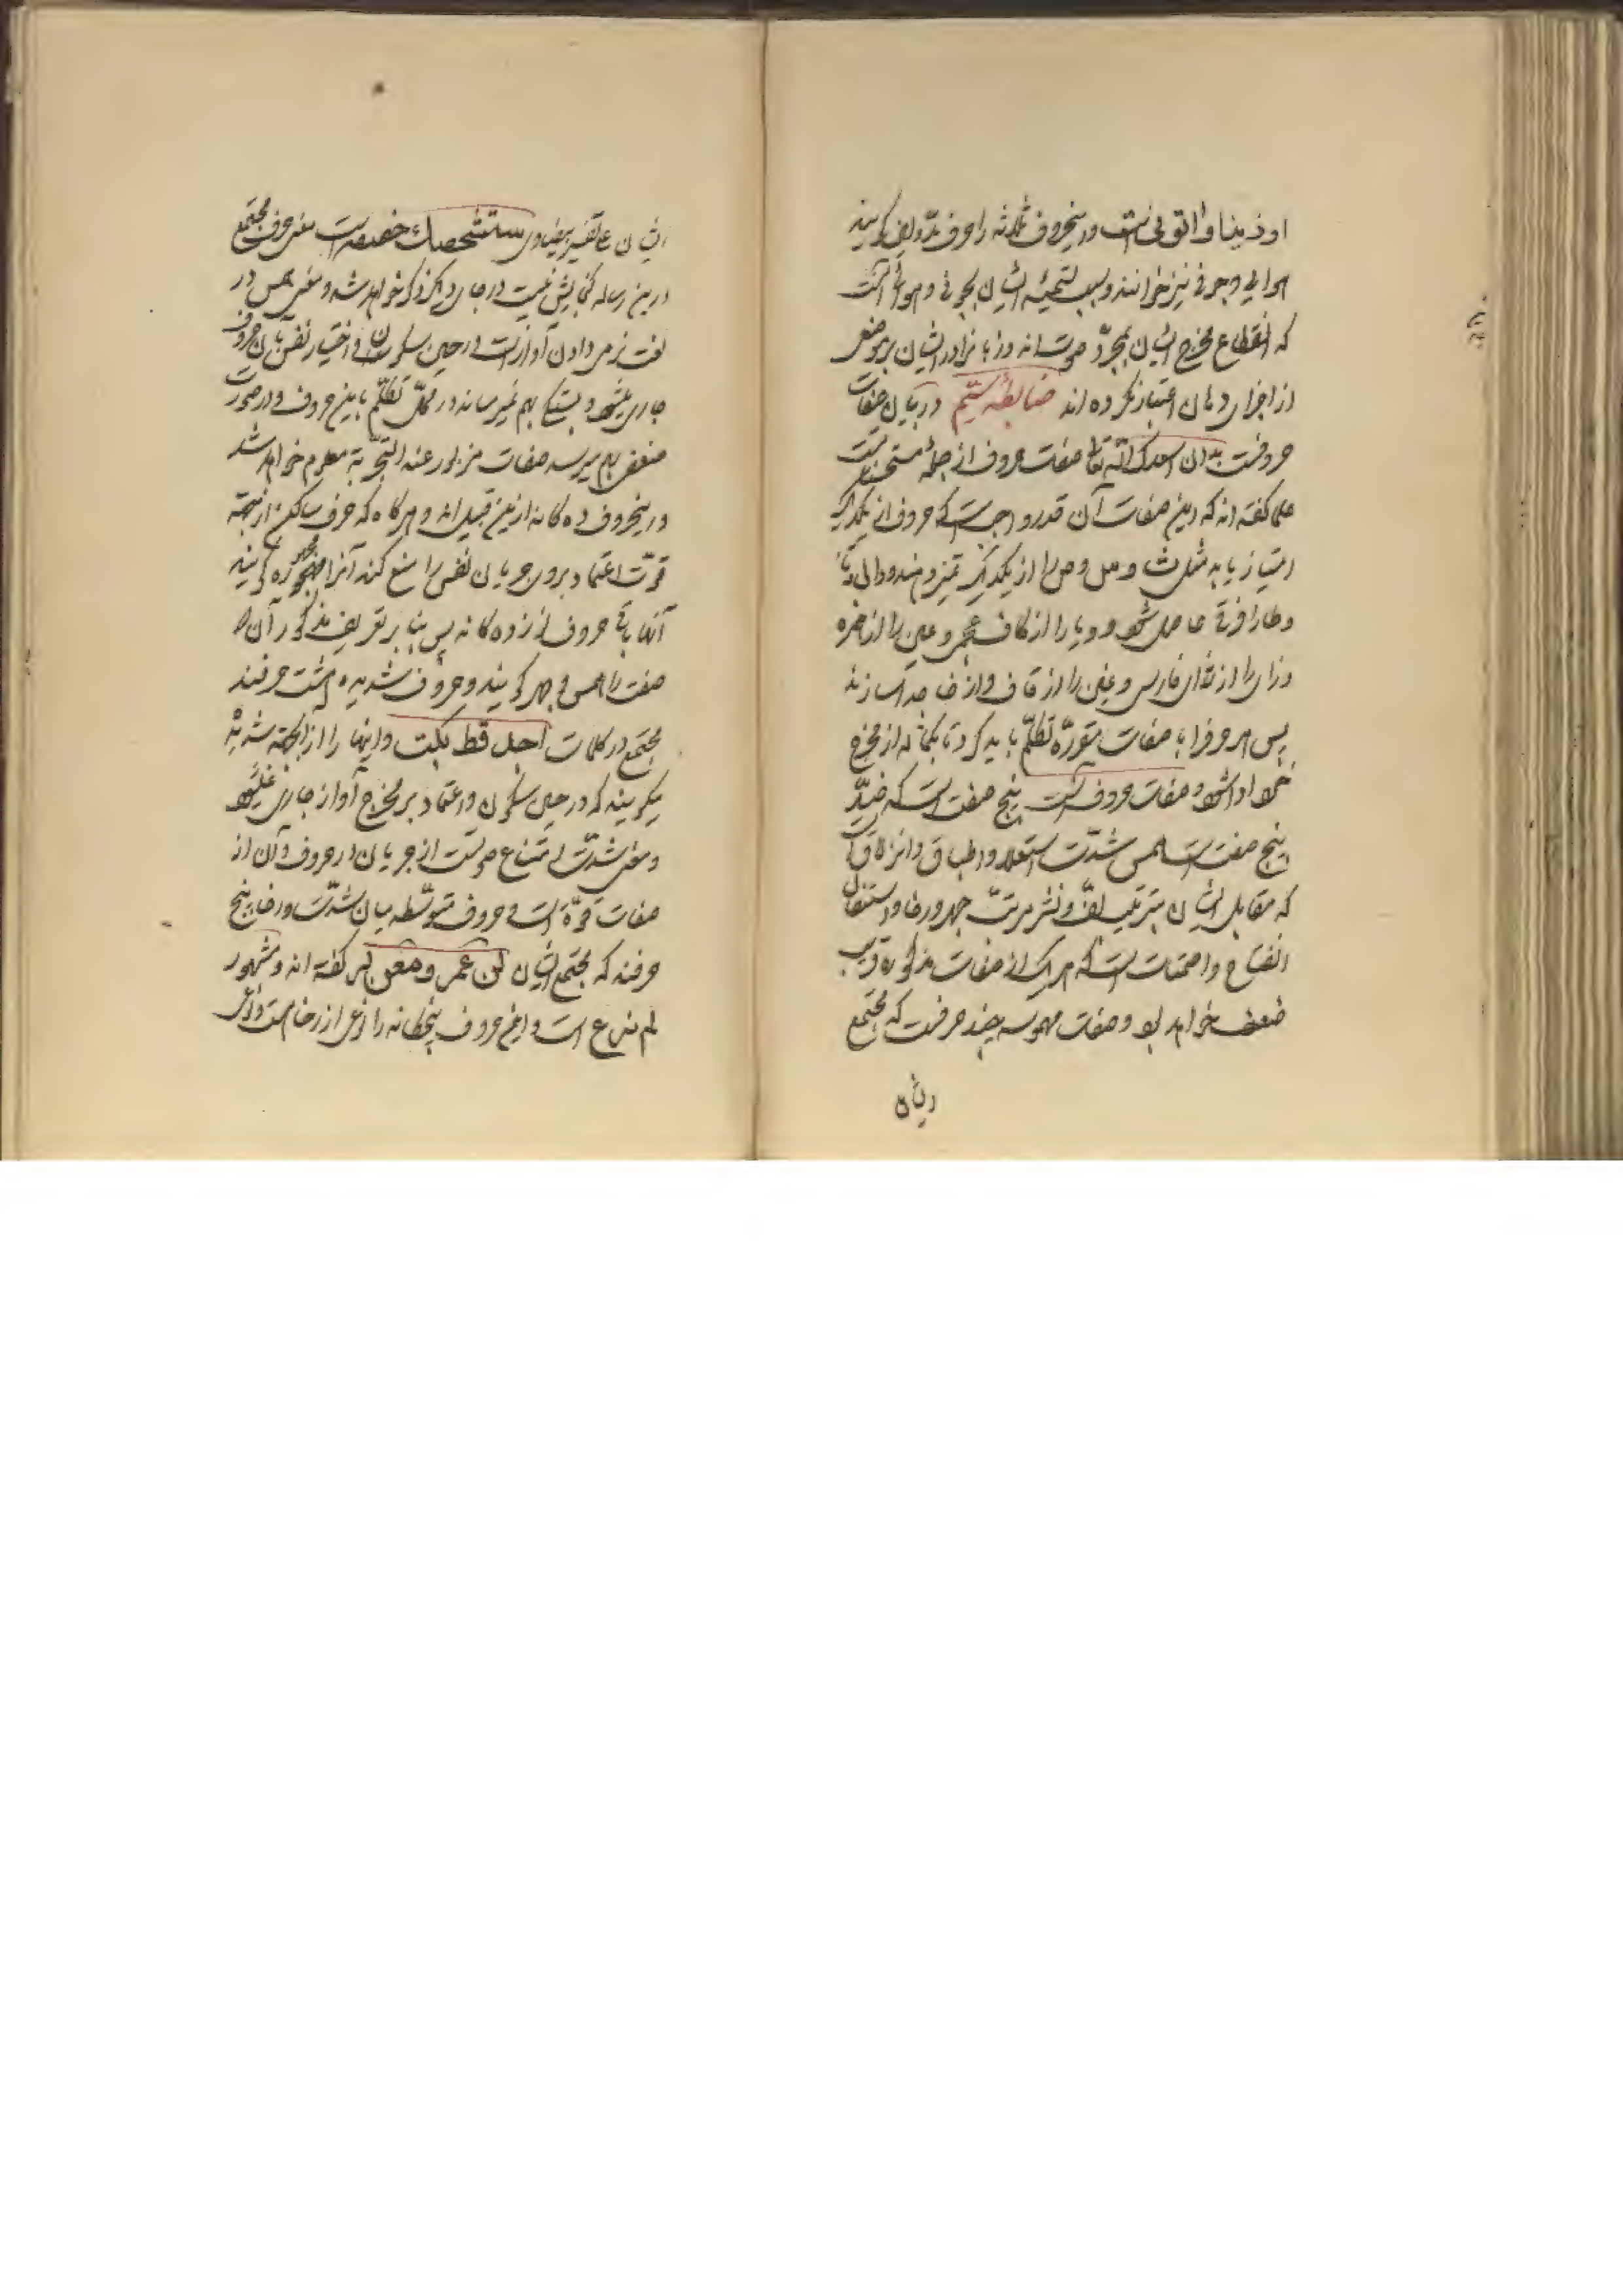 اوذینا واتونی است و اینحروف ثلاثه را حرف مد و لین گویند
هوائی و جوفی نیز خوانند و سبب تسمیه ایشان بجوفی و هوائی آنست
که انقطاع مخرج ایشان بمجرد صوتست نه و زبانرا در ایشان بر موضعی
از اجزای دهان اعتبار نکرده اند ضابطه ستیم در بیان صفات
حروفست بدان اسعدک الله تعالی صفات حروف از جمله مستحسنات
علما گفته اند که این صفات آن قدر واجبست که حروف از یکدیگر
امتیاز یابد مثل ث و س و ص را از یکدیگر تمیز دهند و دال و تا
و طا را فرق حاصل شود و یا را از کاف عجمی و عین را از همزه
و زای را از ژای فارسی و غین را از قاف و از خا جدا سازند
پس هر حرفرا با صفات مقرره تکلم باید کرد تا بکماله از مخرج
خود ادا شود و صفات حروف آنست پنج صفت است که ضد
پنج صفت است همس شدت استعلا و اطباق و انزلاق
که مقابل ایشان بترتیب لف و نشر مرتب جهر و رخا و استفال
انفتاح و اصمات است که هر یک از صفات مذکوره قریب
ضعف خواهد بود و صفات مهموسه چند حرفست که مجتمع
ایشان
ایشان علی تفسیر بیضاوی ستشحثک خصفه است یعنی حرف مجتمع
درین رساله گنجایش نیست در جای دیگر ذکر خواهد شد و معنی همس در
لغت نرمی دادن آواز است در حین سکون و اختیار نفس بآن حروف
جاری میشود و بستگی بهم نمیرساند در محل تکلم باین حروف و در صوت
ضعفی بهم میرسد صفات مزبور عند التجربه معلوم خواهد شد
و اینحروف ده گانه ازین قبیل اند و هرگاه که حرف ساکن از جهة
قوت اعتماد برو جریان نفس را منع کند آنرا مجهوره گویند
آنها باقی حروف اند پس بنابر تعریف مذکور آن
صفت را همس و جهر گویند و حروف شدیده هشت حرفند
مجتمع در کلمات اجد قط بکت و اینها را از آنجهة شدیده
میگویند که در حین سکون و اعتماد بر مخرج آواز جاری نمیشود
و معنی شدت امتناع صوتست از جریان در حروف و آن از
صفات قوة است و حروف متوسطه میان شدت و رخا پنج
حرفند که مجتمع ایشان لن عمر و بعضی گفته اند و مشهور
لم نرع است و این حروف پنجگانه را نوعی از رخاهست و نوعی